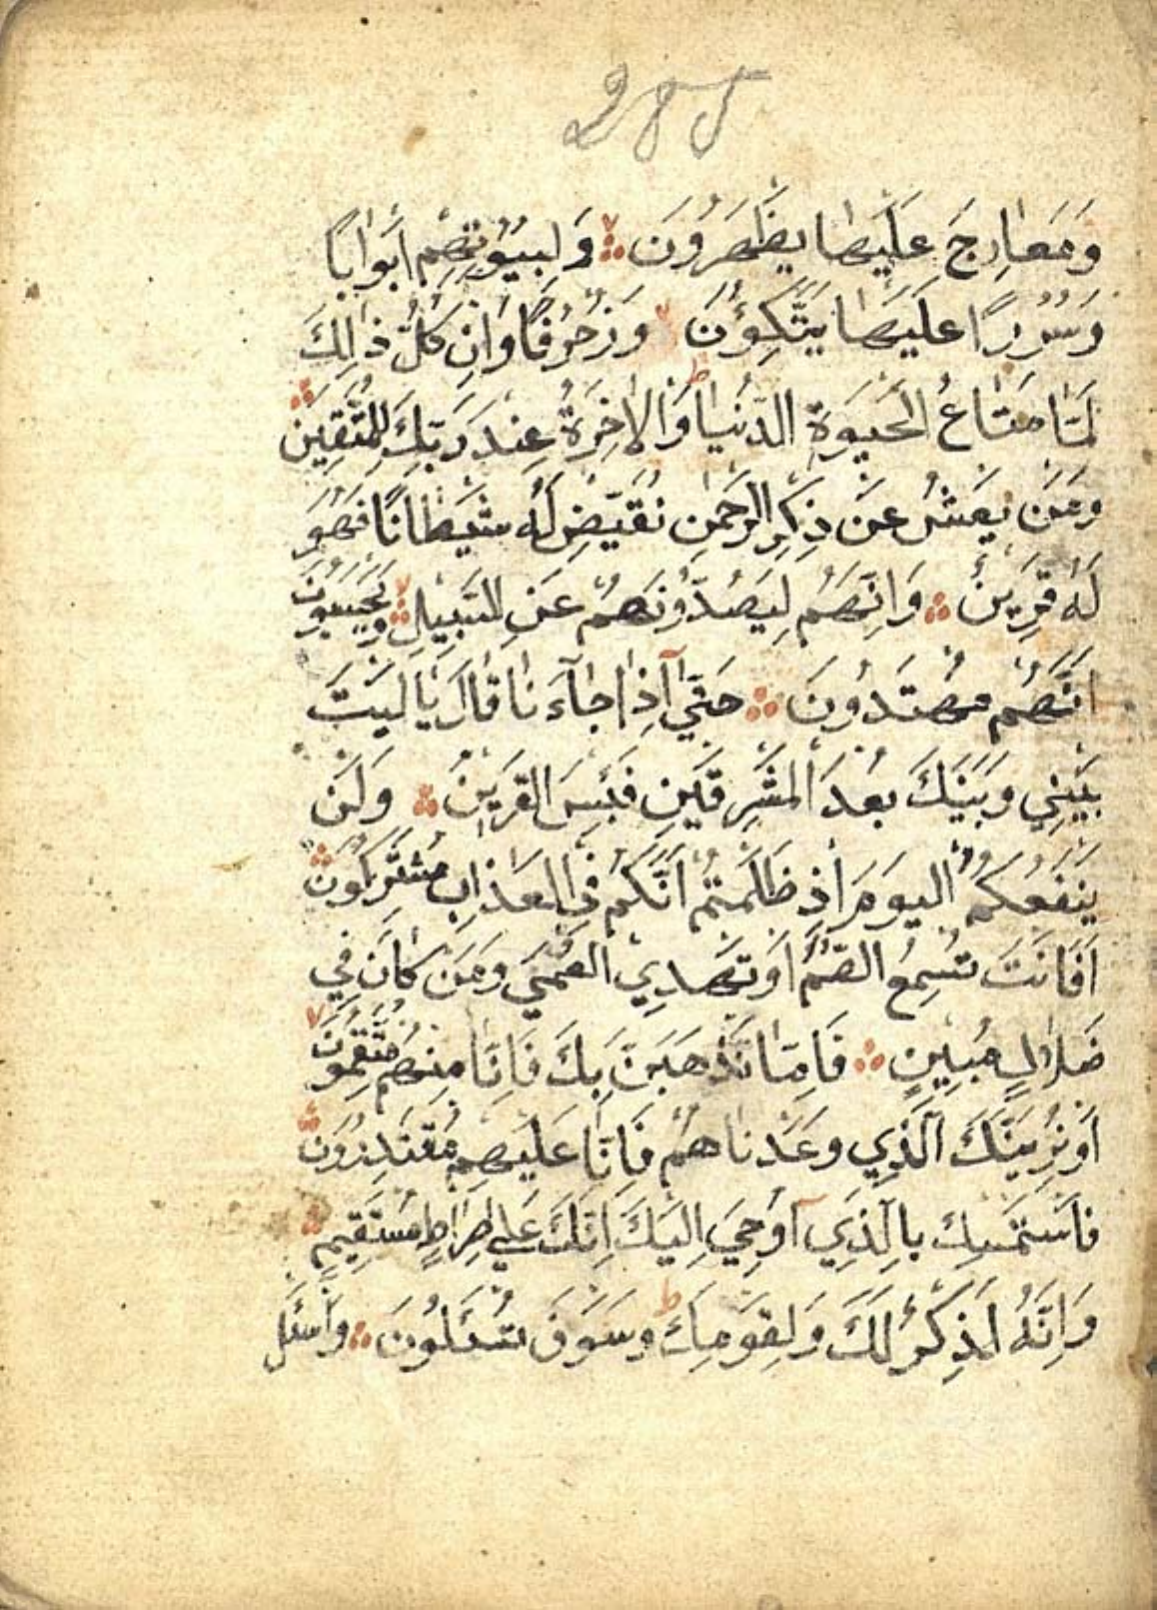 285
وَمَعَارِجَ عَلَيْهَا يَظْهَرُونَ وَلِبُيُوتِهِمْ أَبْوَابًا
وَسُرُرًا عَلَيْهَا يَتَّكِؤُنَ وَزُخْرُفًا وَإِنْ كُلُّ ذَالِكَ
لَمَّا مَتَاعُ الْحَيٰوةِ الدُّنْيَا ط وَالْاٰخِرَةُ عِنْدَ رَبِّكَ لِلْمُتَّقِينَ
وَمَنْ يَعْشُ عَنْ ذِكْرِ الرَّحْمٰنِ نُقَيِّضْ لَهُ شَيْطَانًا فَهُوَ
لَهُ قَرِينٌ وَاِنَّهُمْ لَيَصُدُّونَهُمْ عَنِ السَّبِيلِ وَيَحْسَبُونَ
اَنَّهُمْ مُهْتَدُونَ حَتّٰي اِذَا جَآءَنَا قَالَ يَا لَيْتَ
بَيْنِي وَبَيْنَكَ بُعْدَ الْمَشْرِقَيْنِ فَبِئْسَ الْقَرِينُ وَلَنْ
يَنْفَعَكُمُ الْيَوْمَ اِذْ ظَلَمْتُمْ اَنَّكُمْ فِي الْعَذَابِ مُشْتَرِكُونَ
اَفَاَنْتَ تُسْمِعُ الصُّمَّ اَوْ تَهْدِي الْعُمْيَ وَمَنْ كَانَ فِي
ضَلَالٍ مُبِينٍ فَاِمَّا نَذْهَبَنَّ بِكَ فَاِنَّا مِنْهُمْ مُنْتَقِمُونَ
اَوْ نُرِيَنَّكَ الَّذِي وَعَدْنَاهُمْ فَاِنَّا عَلَيْهِمْ مُقْتَدِرُونَ
فَاسْتَمْسِكْ بِالَّذِي اُوحِيَ اِلَيْكَ اِنَّكَ عَلٰي صِرَاطٍ مُسْتَقِيمٍ
وَاِنَّهُ لَذِكْرٌ لَكَ وَلِقَوْمِكَ ط وَسَوْفَ تُسْئَلُونَ وَاسْئَلْ